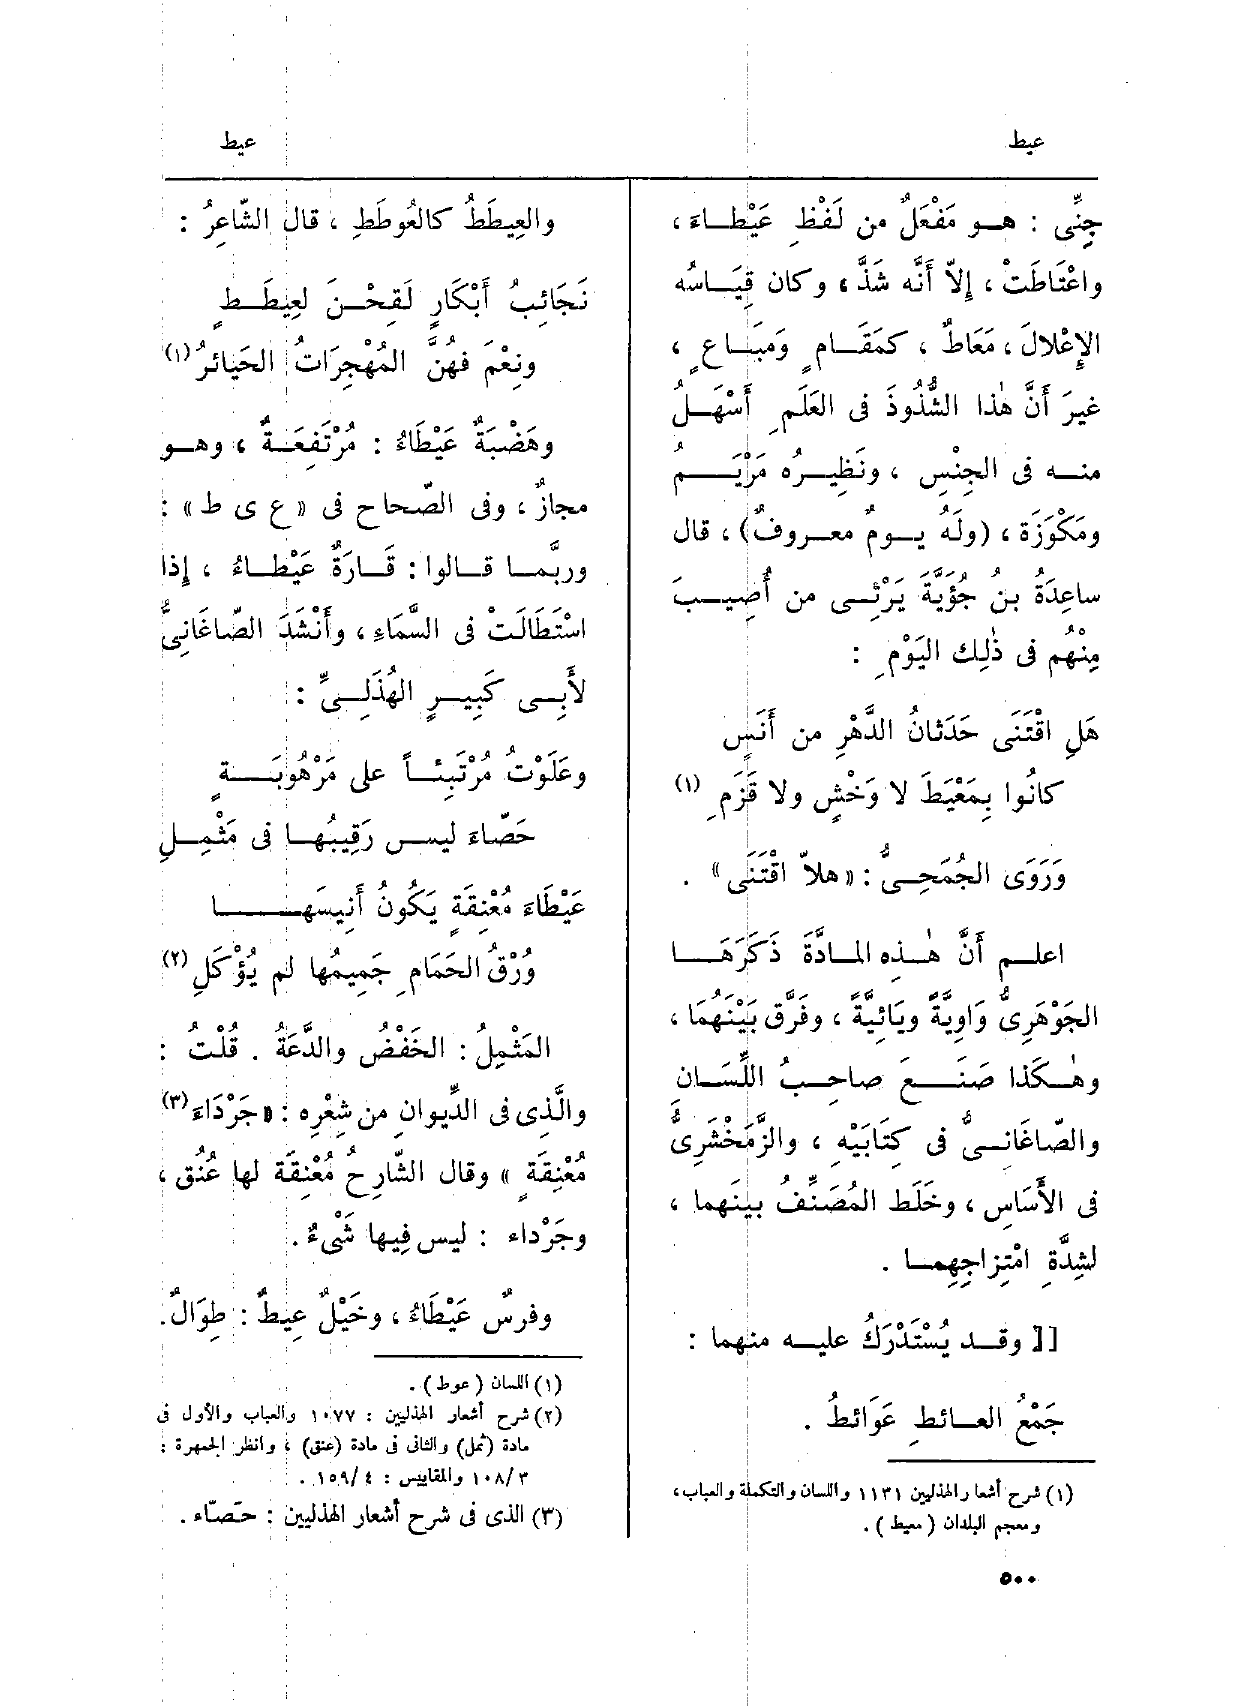 عيط
عيط
جِنِّى : هـو مَفْعَلٌ من لَفْظِ عَيْطـاءَ ،
واعْتَاطَتْ ، إِلاّ أَنَّه شَذَّ ، وكان قِيَـاسُه
الإِعْلالَ ، مَعَاطٌ ، كمَقَـامٍ وَمَبَـاعٍ ،
غيرَ أَنَّ هٰذا الشُّذُوذَ فى العَلَمِ أَسْهَـلُ
منـه فى الجِنْسِ ، ونَظِيـرُه مَرْيَـمُ
ومَكْوَزَة ، (ولَهُ يـومٌ معـروفٌ) ، قال
ساعِدَةُ بنُ جُؤَيَّةَ يَرْثـى من أُصِيـبَ
مِنْهُم فى ذٰلِك اليَوْمِ :
هَلِ اقْتَنَى حَدَثانُ الدَّهْرِ من أَنَسٍ
كانُوا بِمَعْيَطَ لا وَخْشٍ ولا قَزَمِ (١)
وَرَوَى الجُمَحِـىُّ : «هلاّ اقْتَنَى» .
اعلـم أَنَّ هـٰذِه المـادَّةَ ذَكَرَهَـا
الجَوْهَرِىُّ وَاوِيَّةً ويَائِيَّةً ، وفَرَّق بَيْنَهُمَا ،
وهٰـكَذا صَنَـعَ صاحِـبُ اللِّسَـانِ
والصّاغَانِـىُّ فى كِتَابَيْهِ ، والزَّمَخْشَرِىُّ
فى الأَسَاسِ ، وخَلَط المُصَنِّفُ بينَهما ،
لشِدَّةِ امْتِزاجِهِمـا .
[[ وقـد يُسْتَدْرَكُ عليـه منهما :
جَمْعُ العـائطِ عَوَائطُ .
(١) شرح أشعار الهذليين ١١٣١ واللسان والتكملة والعباب ،
ومعجم البلدان ( معيط ) .
والعِيطَطُ كالعُوطَطِ ، قال الشّاعِرُ :
نَجَائِبُ أَبْكَارٍ لَقِحْـنَ لعِيطَـطٍ
ونِعْمَ فهُنَّ المُهْجِرَاتُ الحَيائرُ (١)
وهَضْبَةٌ عَيْطَاءُ : مُرْتَفِعَـةٌ ، وهـو
مجازٌ ، وفى الصّحاح فى «ع ى ط» :
وربَّمـا قـالوا : قَـارَةٌ عَيْطـاءُ ، إِذا
اسْتَطَالَتْ فى السَّمَاءِ ، وأَنْشَدَ الصّاغَانِىُّ
لأَبِـى كَبِيـرٍ الهُذَلِـىِّ :
وعَلَوْتُ مُرْتَبِئـاً على مَرْهُوبَـةٍ
حَصّاءَ ليـس رَقِيبُهـا فى مَثْمِـلِ
عَيْطَاءَ مُعْنِقَةٍ يَكُونُ أَنِيسَهـا
وُرْقُ الحَمَامِ جَمِيمُها لم يُؤْكَلِ (٢)
المَثْمِلُ : الخَفْضُ والدَّعَةُ . قُلْتُ :
والَّذِى فى الدِّيوانِ من شِعْرِه : «جَرْدَاءَ (٣)
مُعْنِقَةٍ » وقال الشّارِحُ مُعْنِقَة لها عُنُق ،
وجَرْداء : ليس فِيها شَىْءٌ .
وفرسٌ عَيْطَاءُ ، وخَيْلٌ عِيطٌ : طِوَالٌ .
(١) اللسان ( عوط ) .
(٢) شرح أشعار الهذليين : ١٠٧٧ والعباب والأول فى
مادة (ثمل) والثانى فى مادة (عنق) ، وانظر الجمهرة :
١٠٨/٣ والمقاييس : ٤ /١٥٩ .
(٣) الذى فى شرح أشعار الهذليين : حصّاء .
٥٠٠